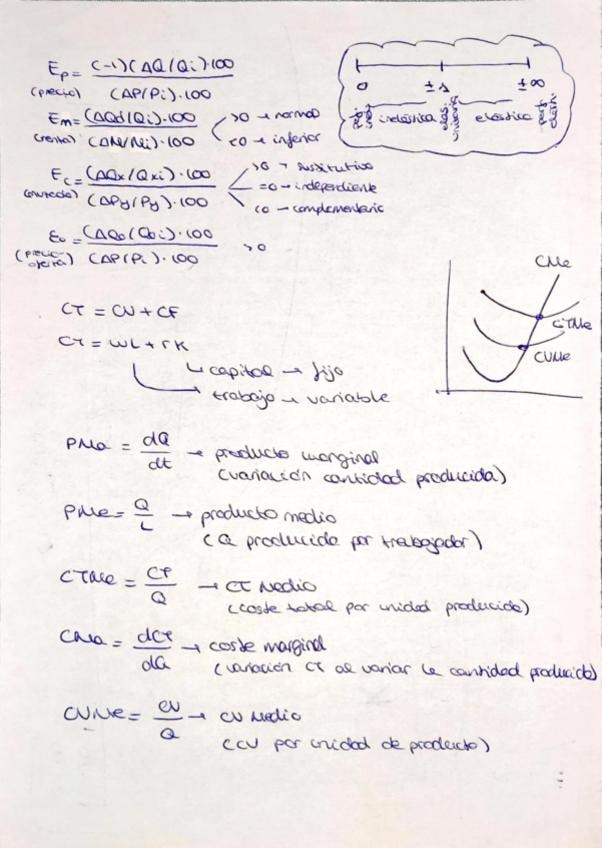 Ep = (-1)(ΔQ/Qi)·100 / (ΔP/Pi)·100
(precio)
Em = (ΔQd/Qi)·100 / (ΔM/Mi)·100
(renta)
>0 → normal
<0 → inferior
Ec = (ΔQx/Qxi)·100 / (ΔPy/Py)·100
>0 → sustitutivo
=0 → independiente
<0 → complementario
Eo = (ΔQo/Qoi)·100 / (ΔP/Pi)·100 >0
(precio-oferta)
0 ±1 ±∞
inelástica elas. unitaria elástica
CT = CV + CF
CT = wL + rK
capital → fijo
trabajo → variable
CMa
CTMe
CVMe
PMa = dQ/dt → producto marginal
(variación cantidad producida)
PMe = Q/L → producto medio
(Q producida por trabajador)
CTMe = CT/Q → CT Medio
(coste total por unidad producida)
CMa = dCT/dQ → coste marginal
(variación CT al variar la cantidad producida)
CVMe = CV/Q → CV Medio
(CV por unidad de producto)